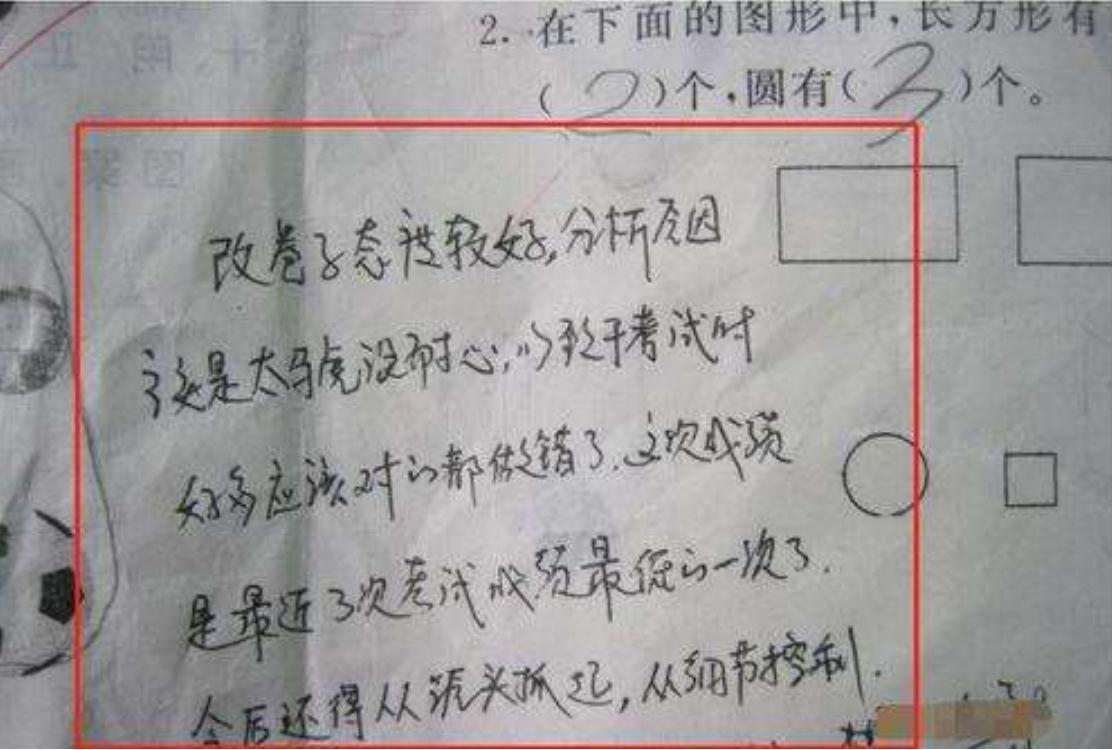 2. 在下面的图形中,长方形有
(2)个,圆有(3)个。
改卷子态度较好,分析原因
主要是太马虎没耐心,以致于考试时
好多应该对的都做错了.这次成绩
是最近3次考试成绩最低的一次了.
今后还得从源头抓起,从细节控制.